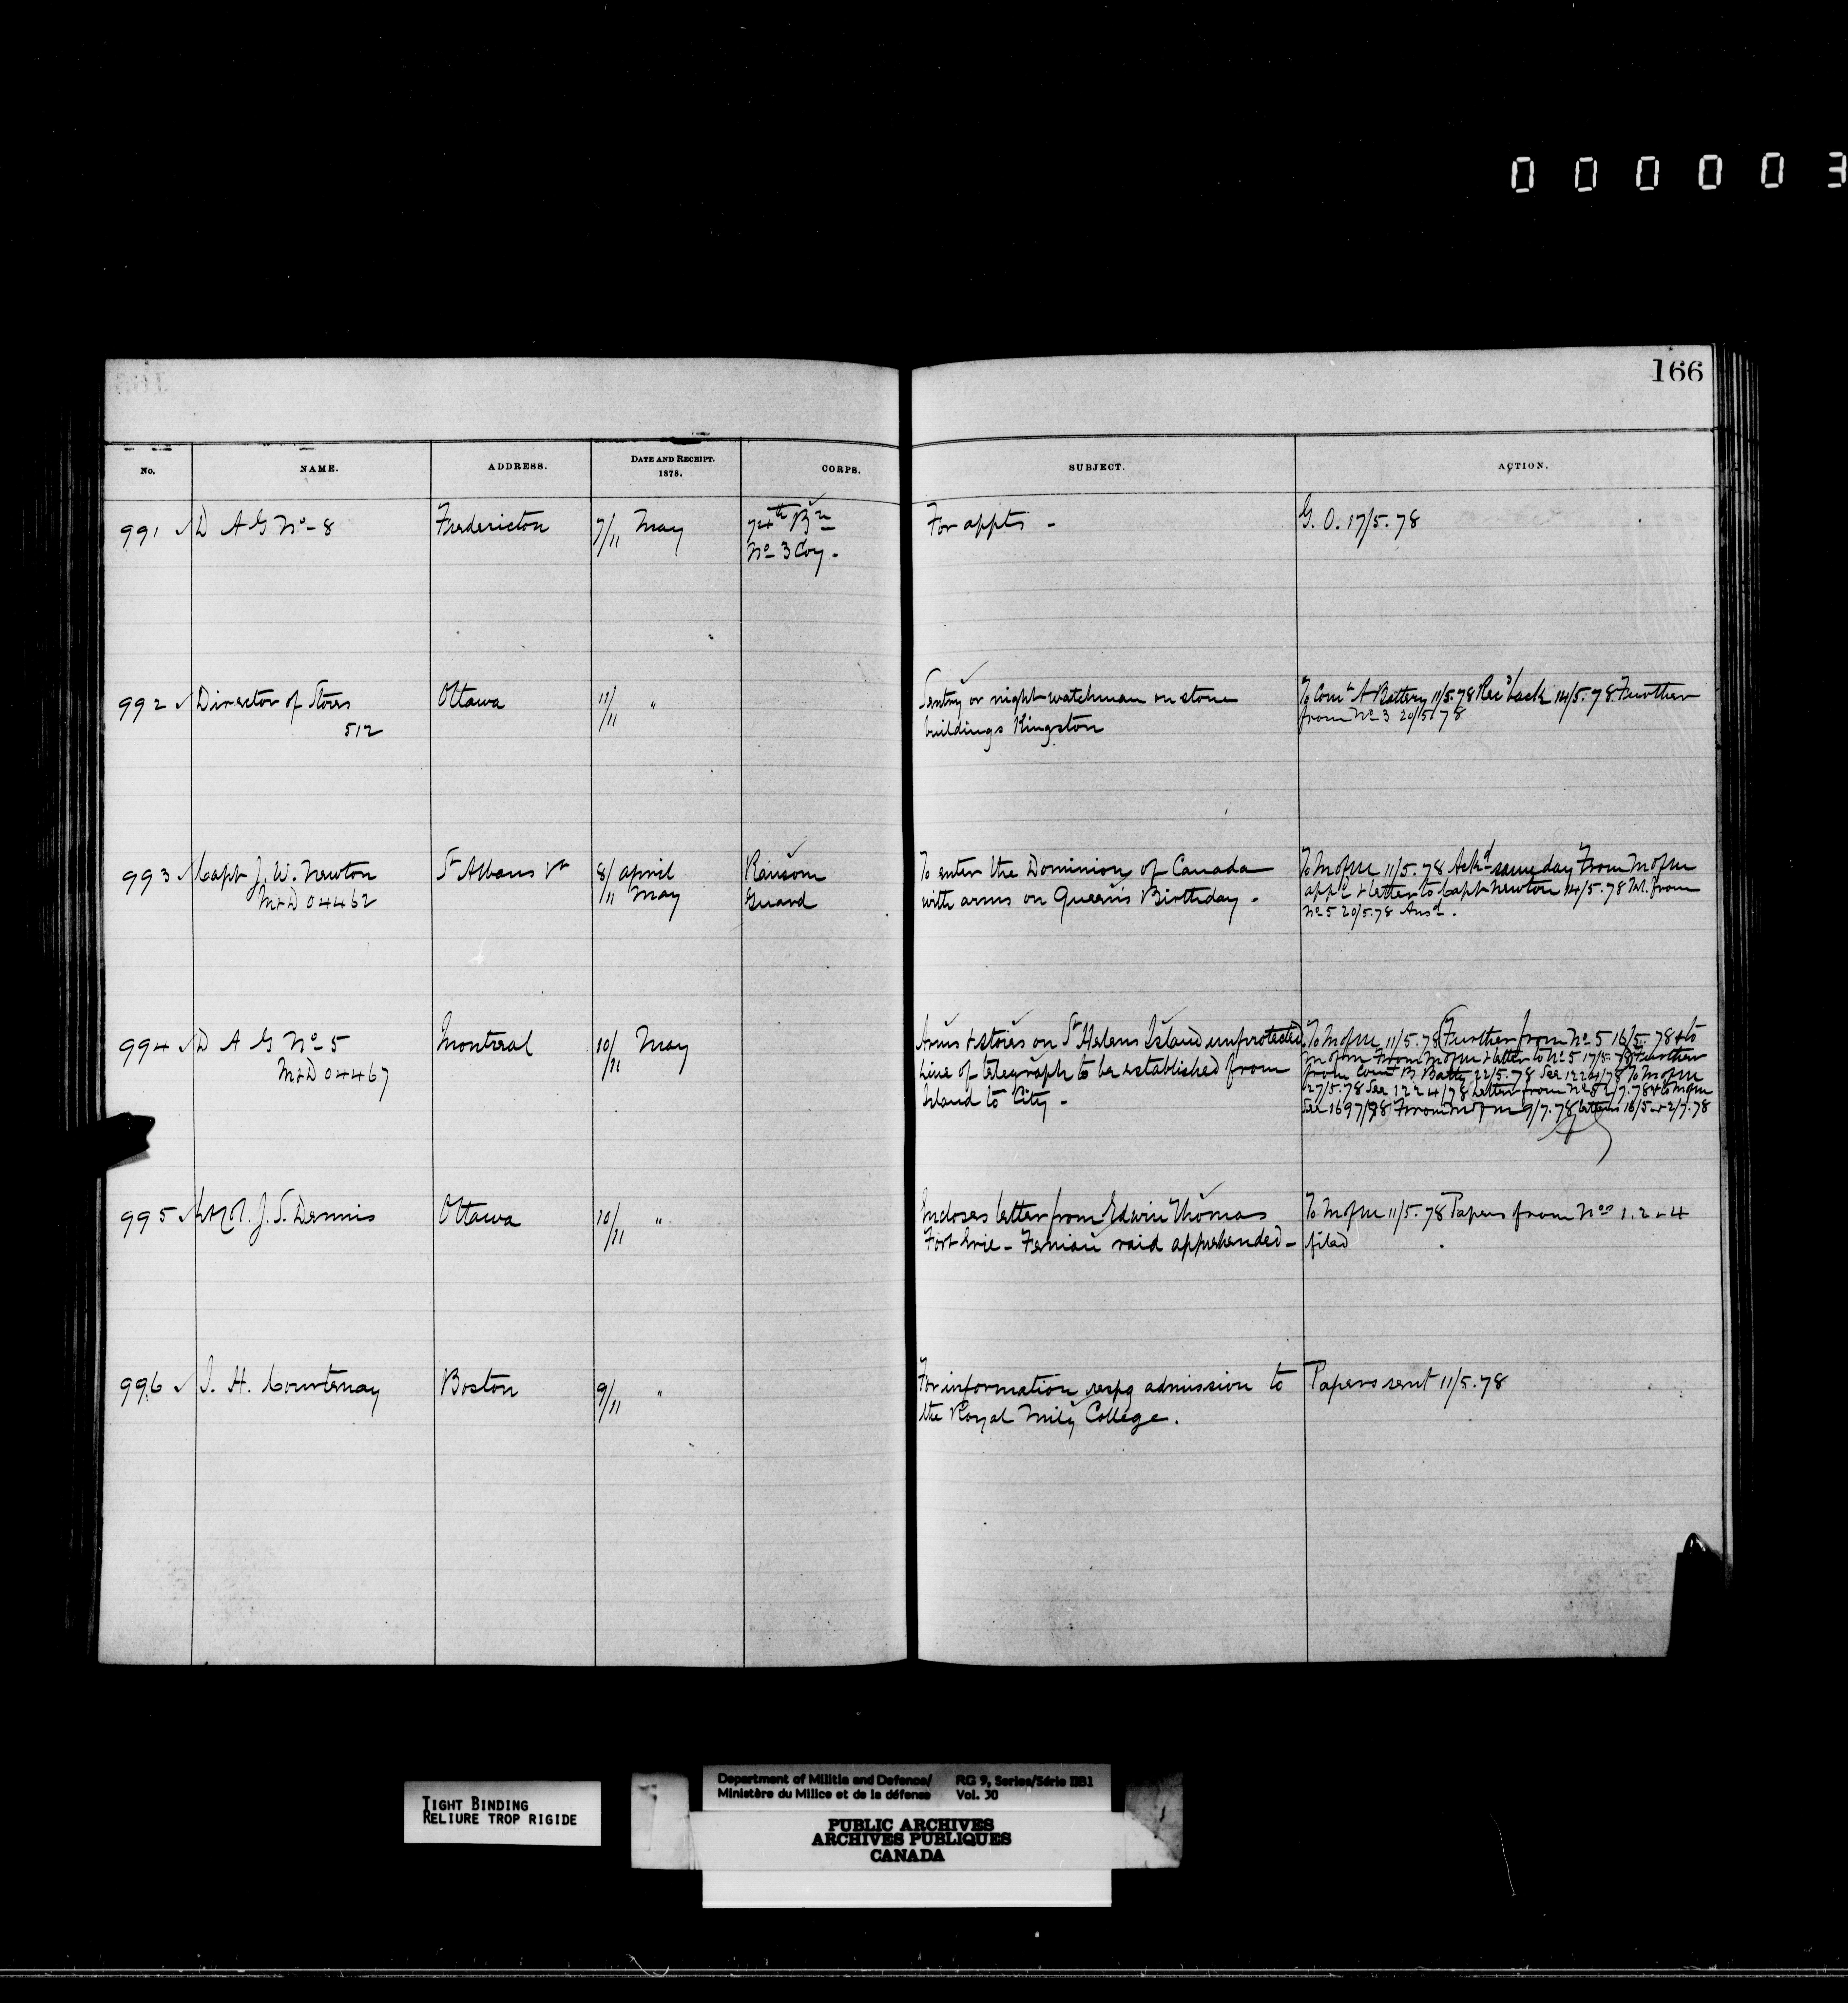 000003
166
No. NAME. ADDRESS. DATE AND RECEIPT. 1878. CORPS. SUBJECT. ACTION.
991 D A G No 8 Fredericton 7/11 May 74th Bn For appts - G. O. 17/5.78
No 3 Coy.
992 Director of Stores Ottawa 11/11 " Sentry or night watchman on stone To Comt A Battery 11/5.78 Recd back 14/5.78 Further
512 buildings Kingston from No 3 20/5/78
993 Capt J. W. Newton St Albans Vt 8/ April Ransom To enter the Dominion of Canada To M of M 11/5.78 Ackd same day From M of M
M&D 04462 /11 May Guard with arms on Queen's Birthday. appd & letter to Capt Newton 14/5.78 from
No 5 20/5.78 Ansd.
994 D A G No 5 Montreal 10/11 May Arms & stores on St Helens Island unprotected. To M of M 11/5.78 Further from No 5 16/5.78 & to
M&D 04467 Line of telegraph to be established from M of M From M of M & letter to No 5 17/5.78 Further
Island to City - from Comt B Batty 22/5.78 See 1224/78 To M of M
27/5.78 See 1224/78 Letter from No 5 2/7.78 & to M of M
See 1697/78 From M of M 9/7.78 letters 16/5 & 2/7.78
995 Lt Col. J. S. Dennis Ottawa 10/11 " Incloses letter from Edwin Thomas To M of M 11/5.78 Papers from Nos 1.2 & 4
Fort Erie - Fenian raid apprehended - filed
996 J. H. Courtenay Boston 9/11 " For information respg admission to Papers sent 11/5.78
the Royal Mily College.
TIGHT BINDING
RELIURE TROP RIGIDE
Department of Militia and Defence/ RG 9, Series/Série IIB1
Ministère du Milice et de la défense Vol. 30
PUBLIC ARCHIVES
ARCHIVES PUBLIQUES
CANADA